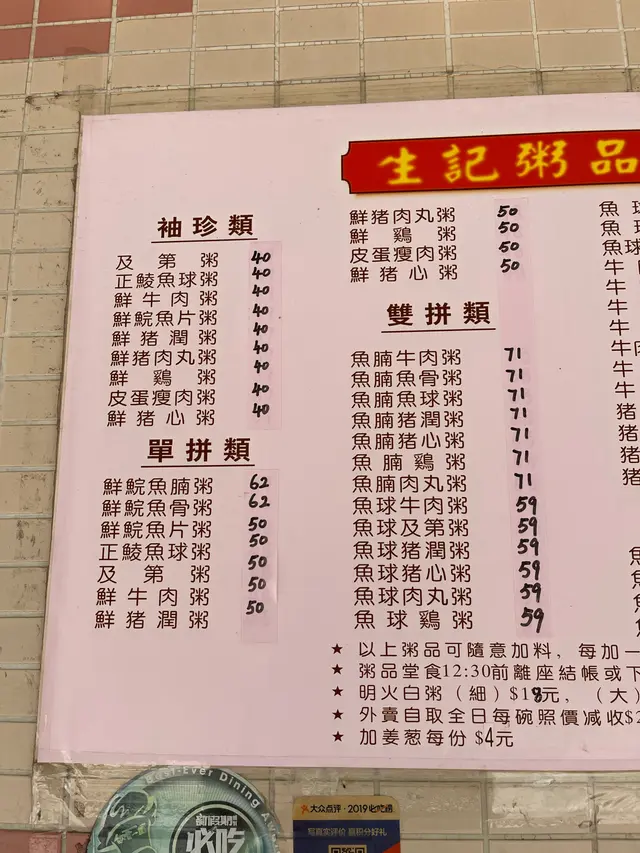 生記粥品
袖珍類
及第粥 40
正鯪魚球粥 40
鮮牛肉粥 40
鮮鯇魚片粥 40
鮮猪潤粥 40
鮮猪肉丸粥 40
鮮鷄粥 40
皮蛋瘦肉粥 40
鮮猪心粥 40
單拼類
鮮鯇魚腩粥 62
鮮鯇魚骨粥 62
鮮鯇魚片粥 50
正鯪魚球粥 50
及第粥 50
鮮牛肉粥 50
鮮猪潤粥 50
鮮猪肉丸粥 50
鮮鷄粥 50
皮蛋瘦肉粥 50
鮮猪心粥 50
雙拼類
魚腩牛肉粥 71
魚腩魚骨粥 71
魚腩魚球粥 71
魚腩猪潤粥 71
魚腩猪心粥 71
魚腩鷄粥 71
魚腩肉丸粥 71
魚球牛肉粥 59
魚球及第粥 59
魚球猪潤粥 59
魚球猪心粥 59
魚球肉丸粥 59
魚球鷄粥 59
魚球
魚
魚
牛
牛
牛
牛
牛肉
牛
猪
猪
猪
猪
★ 以上粥品可隨意加料，每加一
★ 粥品堂食12:30前離座結帳或下
★ 明火白粥（細）$18元，（大）
★ 外賣自取全日每碗照價减收$2
★ 加姜葱每份 $4元
Best-Ever Dining
必吃
大众点评·2019必吃榜
写真实评价 赢积分好礼